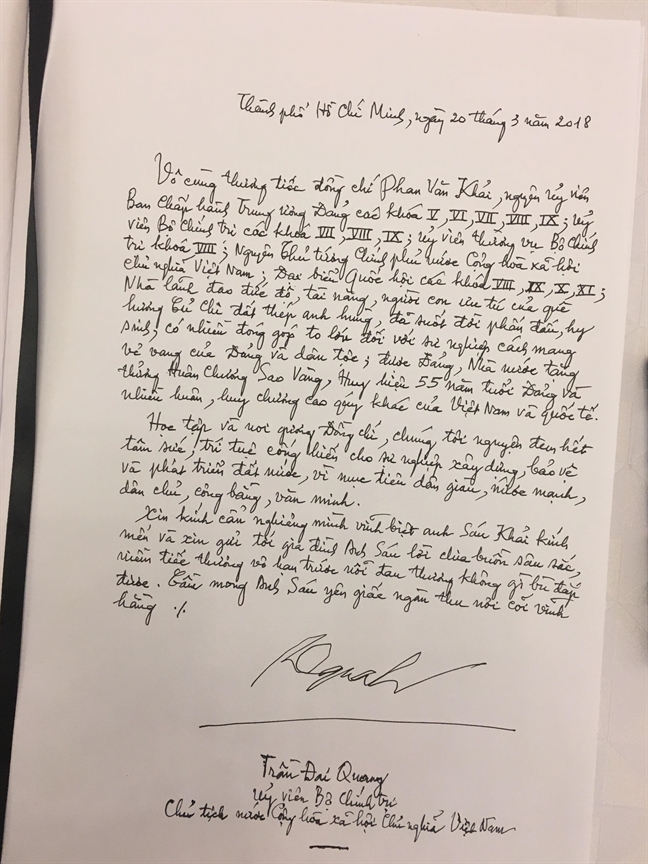 Thành phố Hồ Chí Minh, ngày 20 tháng 3 năm 2018
Vô cùng thương tiếc đồng chí Phan Văn Khải, nguyên Uỷ viên
Ban Chấp hành Trung ương Đảng các khóa V, VI, VII, VIII, IX; Uỷ
viên Bộ Chính trị các khóa VII, VIII, IX; Uỷ viên thường vụ Bộ Chính
trị khoá VIII; Nguyên Thủ tướng Chính phủ nước Cộng hòa xã hội
chủ nghĩa Việt Nam; Đại biểu Quốc hội các khóa VIII, IX, X, XI;
Nhà lãnh đạo đức độ, tài năng, người con ưu tú của quê
hương Củ Chi đất thép anh hùng, đã suốt đời phấn đấu, hy
sinh, có nhiều đóng góp to lớn đối với sự nghiệp cách mạng
vẻ vang của Đảng và dân tộc; được Đảng, Nhà nước tặng
thưởng Huân chương Sao Vàng, Huy hiệu 55 năm tuổi Đảng và
nhiều huân, huy chương cao quý khác của Việt Nam và quốc tế.
Học tập và noi gương Đồng chí, chúng tôi nguyện đem hết
tâm sức, trí tuệ cống hiến cho sự nghiệp xây dựng, bảo vệ
và phát triển đất nước, vì mục tiêu dân giàu, nước mạnh,
dân chủ, công bằng, văn minh.
Xin kính cẩn nghiêng mình vĩnh biệt anh Sáu Khải kính
mến và xin gửi tới gia đình Anh Sáu lời chia buồn sâu sắc,
niềm tiếc thương vô hạn trước nỗi đau thương không gì bù đắp
được. Cầu mong Anh Sáu yên giấc ngàn thu nơi cõi vĩnh
hằng ./.
Trần Đại Quang
Uỷ viên Bộ Chính trị
Chủ tịch nước Cộng hòa xã hội Chủ nghĩa Việt Nam